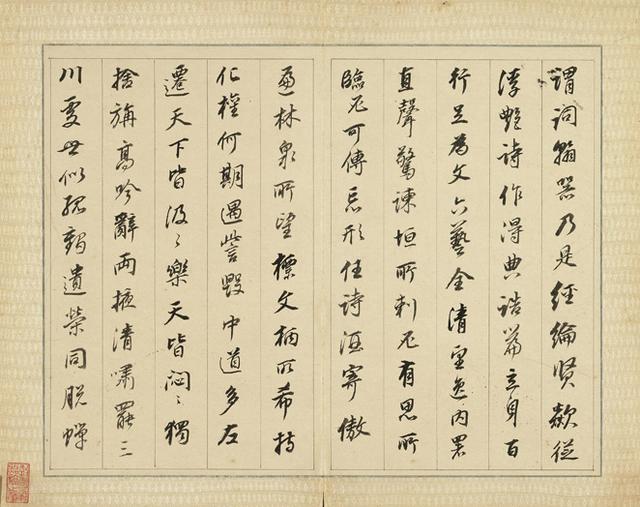 謂詞翰器乃是經綸賢欻從
浮艷詩作得典誥篇立身百
行足為文六藝全清望逸內署
直聲驚諫垣所刺必有思所
臨必可傳忘形任詩酒寄傲
遍林泉所望標文柄所希持
化權何期遇訾毀中道多左
遷天下皆汲〻樂天皆悶〻獨
捨旃高吟辭兩掖清嘯罷三
川處世似孤鶴遺榮同脫蟬